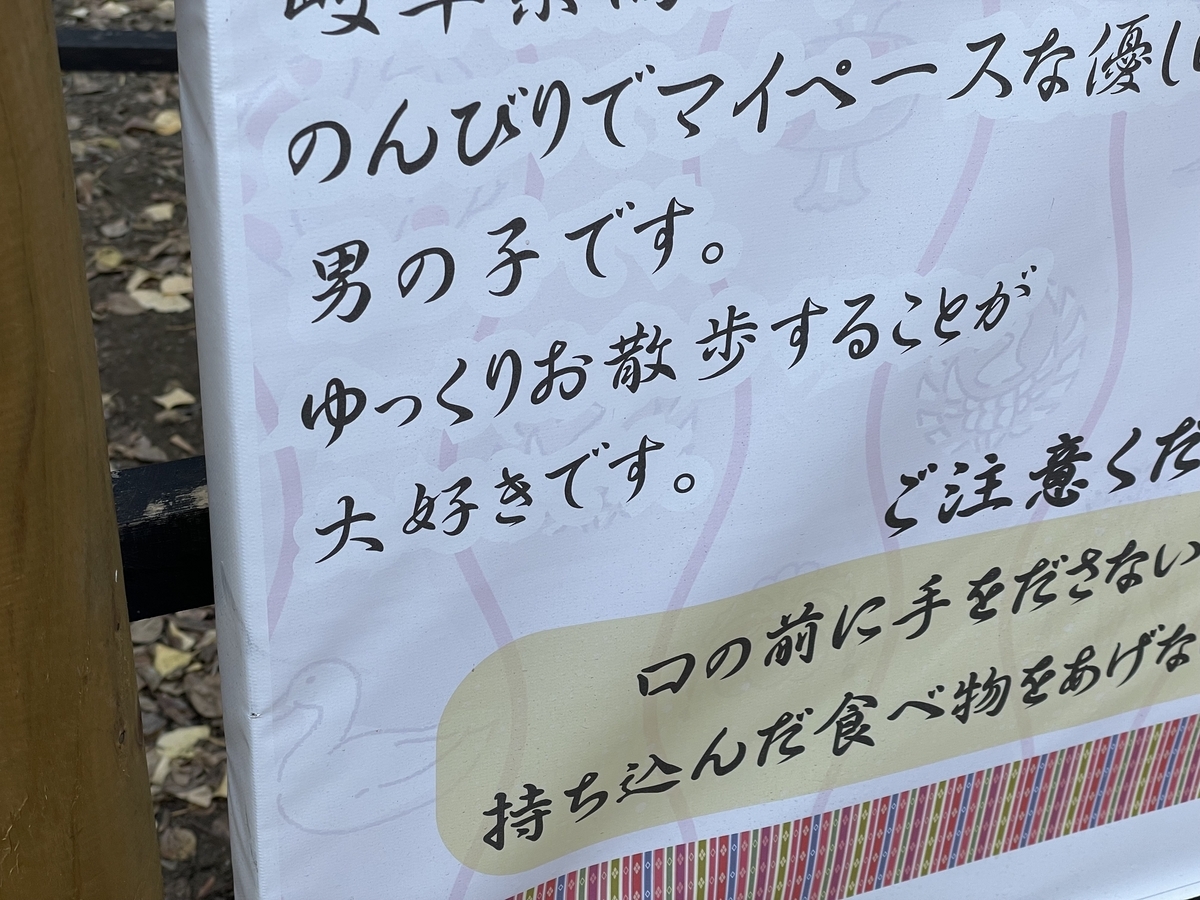 岐阜県
のんびりでマイペースな優し
男の子です。
ゆっくりお散歩することが
大好きです。
ご注意くだ
口の前に手をださない
持ち込んだ食べ物をあげな